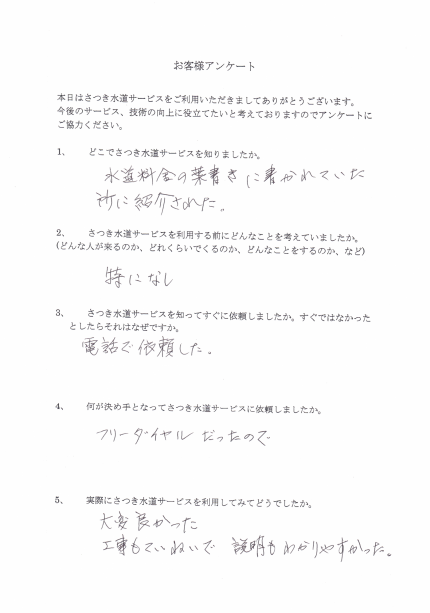 お客様アンケート
本日はさつき水道サービスをご利用いただきましてありがとうございます。
今後のサービス、技術の向上に役立てたいと考えておりますのでアンケートに
ご協力ください。
1、 どこでさつき水道サービスを知りましたか。
水道料金の葉書きに書かれていた
所に紹介された。
2、 さつき水道サービスを利用する前にどんなことを考えていましたか。
(どんな人が来るのか、どれくらいでくるのか、どんなことをするのか、など)
特になし
3、 さつき水道サービスを知ってすぐに依頼しましたか。すぐではなかった
としたらそれはなぜですか。
電話で依頼した。
4、 何が決め手となってさつき水道サービスに依頼しましたか。
フリーダイヤルだったので
5、 実際にさつき水道サービスを利用してみてどうでしたか。
大変良かった
工事もていねいで 説明もわかりやすかった。